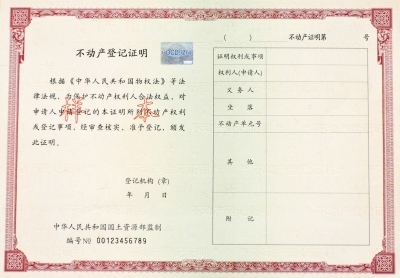 不动产登记证明
根据《中华人民共和国物权法》等法
律法规，为保护不动产权利人合法权益，对
申请人申请登记的本证明所列不动产权利
或登记事项，经审查核实，准予登记，颁发
此证明。
样本
登记机构（章）
年 月 日
中华人民共和国国土资源部监制
编号№ 00123456789
（ ） 不动产证明第 号
证明权利或事项
权利人(申请人)
义务人
坐落
不动产单元号
其他
附记